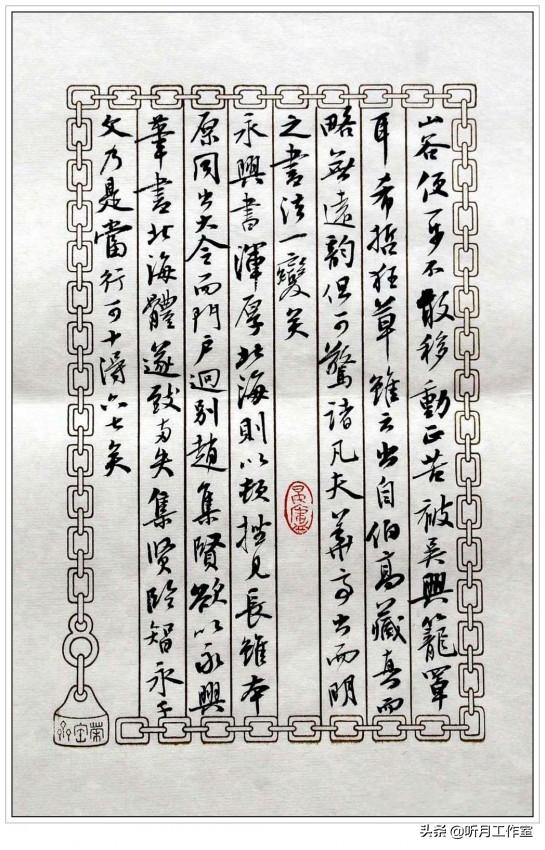 山谷便不敢移動正苦被吳興籠罩
耳希哲狂草雖云出自伯高藏真而
略無遠韻但可驚諸凡夫華亭出而明
之書法一變矣
永興書渾厚北海則以頓挫見長雖本
原同出大令而門戶迥別趙集賢欲以永興
筆書北海體遂致兩失集賢臨智永千
文乃是當行可十得六七矣
榮宝齋
头条 @听月工作室